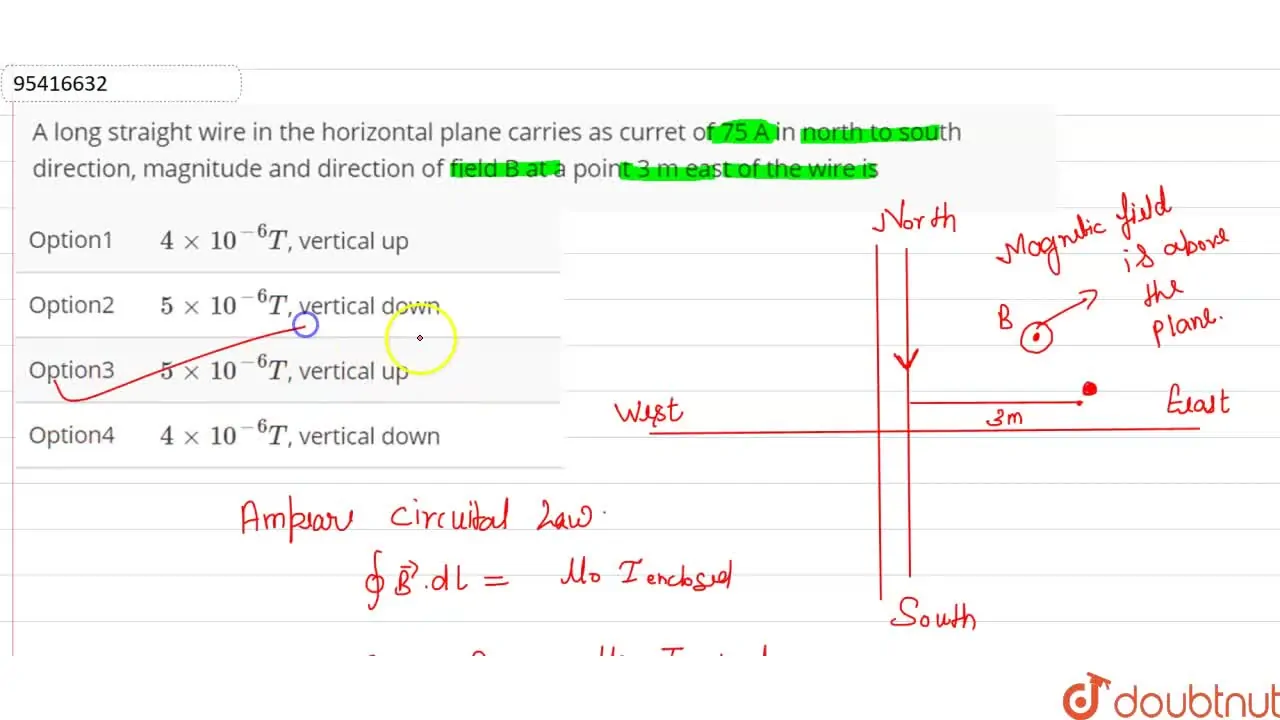 95416632
A long straight wire in the horizontal plane carries as curret of 75 A in north to south
direction, magnitude and direction of field B at a point 3 m east of the wire is
Option1 4 × 10⁻⁶T, vertical up
Option2 5 × 10⁻⁶T, vertical down
Option3 5 × 10⁻⁶T, vertical up
Option4 4 × 10⁻⁶T, vertical down
North
Magnetic field
is above
the
plane.
B
West
3m
East
South
Ampear circuital Law.
∮ B⃗.dl = μ₀ I enclosed
doubtnut